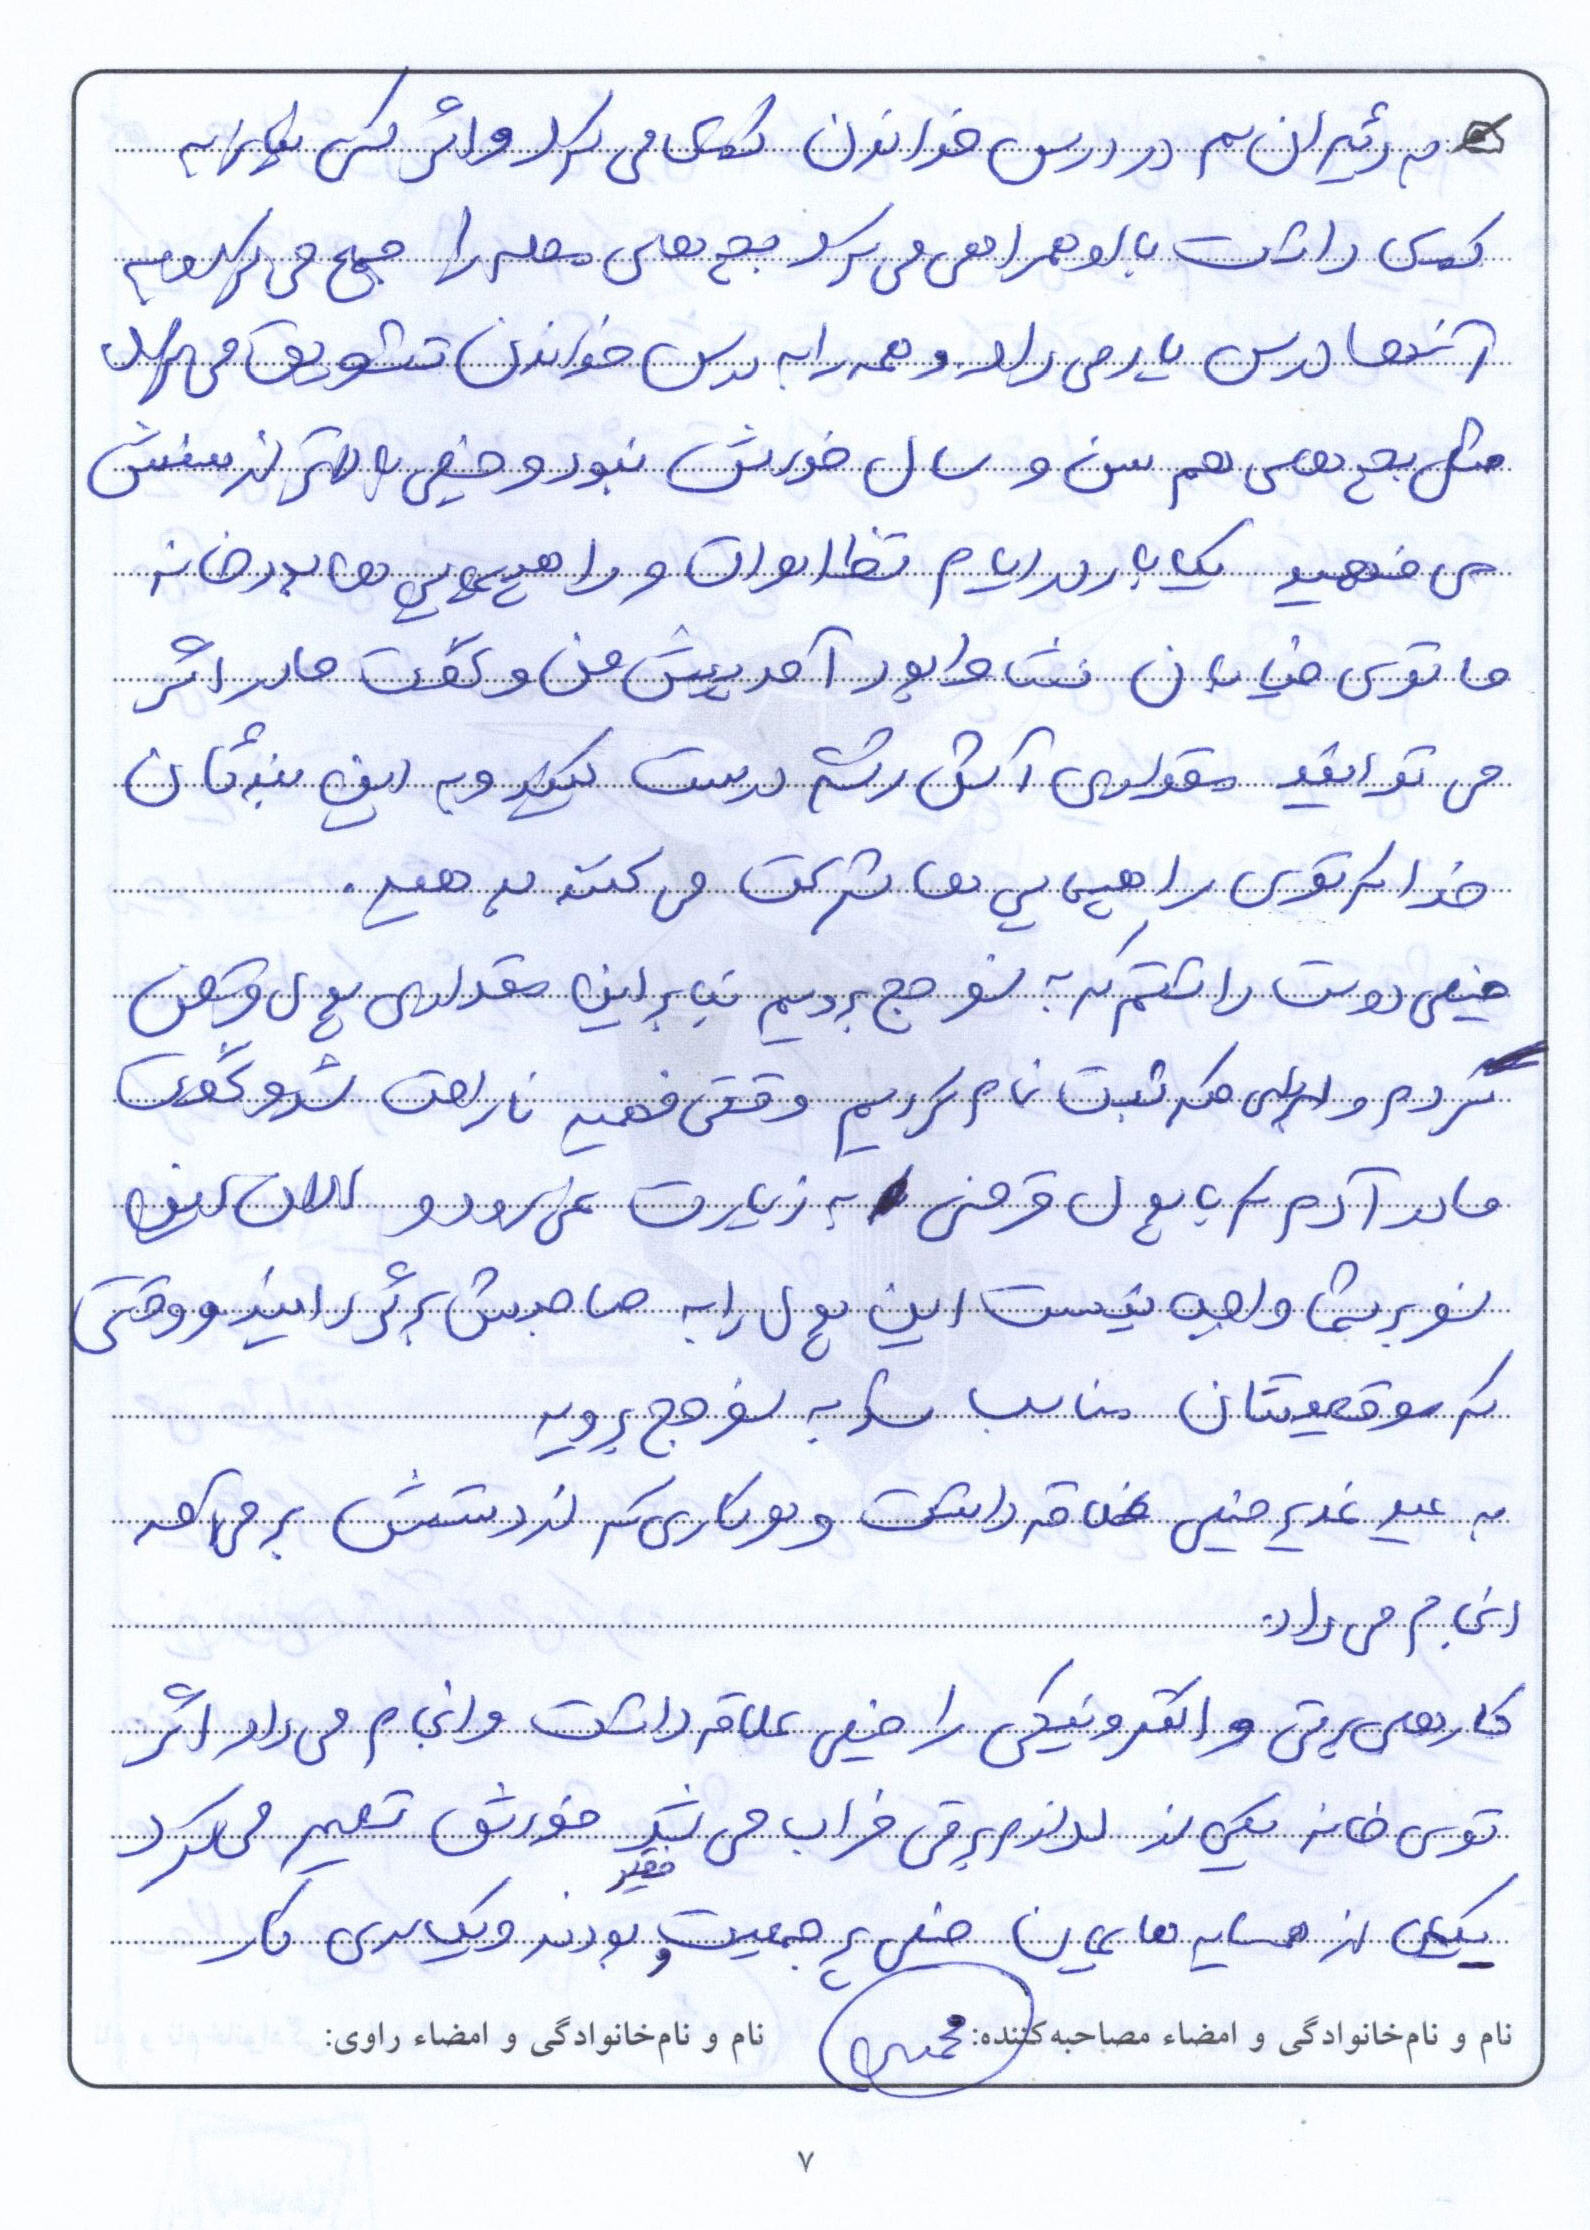 به دیگران هم در درس خواندن کمک می کرد و اگر کسی نیاز به
کمک داشت با او همراهی می کرد بچه های محله را جمع می کرد و به
آنها درس یاد می داد و همه را به درس خواندن تشویق می کرد
مثل بچه های هم سن و سال خودش نبود و خیلی بالاتر از سنش
می فهمید یکبار در ایام تظاهرات و راهپیمایی ها در خانه
ما توی خیابان بود آمد پیش من و گفت مادر اگر
می توانید مقداری آش رشته درست کنید و به این بندگان
خدا که توی راهپیمایی ها شرکت می کنند بدهید.
خیلی دوست داشتم که به سفر حج برویم بنابراین مقداری پول قرض
کردم و برای مکه ثبت نام کردیم وقتی فهمید ناراحت شد و گفت
مادر آدم که با پول قرضی به زیارت نمی رود و الان این
سفر بر شما واجب نیست این پول را به صاحبش برگردانید و وقتی
که موقعیتتان مناسب شد به سفر حج بروید
به عید غدیر خیلی علاقه داشت و هر کاری که از دستش بر می آمد
انجام می داد.
کارهای برقی و الکترونیکی را خیلی علاقه داشت و انجام می داد اگر
توی خانه یکی از لوازم برقی خراب می شد خودش تعمیر می کرد
یکی از همسایه هایمان خیلی پر جمعیت و فقیر بودند و یک سری کار
نام و نام‌خانوادگی و امضاء مصاحبه‌کننده: محمدی
نام و نام‌خانوادگی و امضاء راوی:
۷